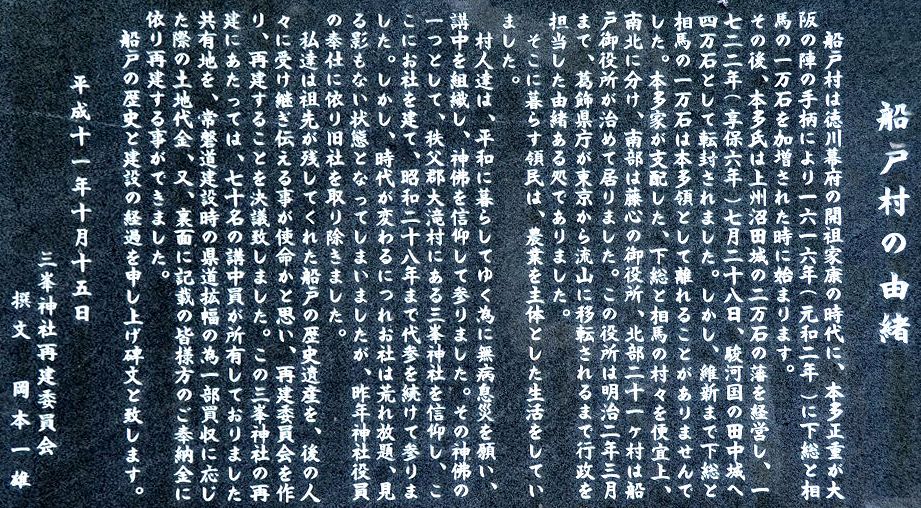 船戸村の由緒
船戸村は徳川幕府の開祖家康の時代に、本多正重が大
阪の陣の手柄により一六一六年(元和二年)に下総と相
馬の一万石を加増された時に始まります。
その後、本多氏は上州沼田城の二万石の藩を経営し、一
七二二年(享保六年)七月二十八日、駿河国の田中城へ
四万石として転封されました。しかし、維新まで下総と
相馬の一万石は本多領として離れることがありませんで
した。本多家が支配した、下総と相馬の村々を便宜上、
南北に分け、南部は藤心の御役所、北部二十一ヶ村は船
戸御役所が治めて居りました。この役所は明治二年三月
まで、葛飾県庁が東京から流山に移転されるまで行政を
担当した由緒ある処でありました。
そこに暮らす領民は、農業を主体とした生活をしてい
ました。
村人達は、平和に暮らしてゆく為に無病息災を願い、
講中を組織し、神佛を信仰して参りました。その神佛の
一つとして、秩父郡大滝村にある三峯神社を信仰し、こ
こにお社を建て、昭和二十八年まで代参を続けて参りま
した。しかし、時代が変わるにつれお社は荒れ放題、見
る影もない状態となってしまいましたが、昨年神社役員
の奉仕に依り旧社を取り除きました。
私達は祖先が残してくれた船戸の歴史遺産を、後の人
々に受け継ぎ伝える事が使命かと思い、再建委員会を作
り、再建することを決議致しました。この三峯神社の再
建にあたっては、七十名の講中員が所有しておりました
共有地を、常磐道建設時の県道拡幅の為一部買収に応じ
た際の土地代金、又、裏面に記載の皆様方のご奉納金に
依り再建する事ができました。
船戸の歴史と建設の経過を申し上げ碑文と致します。
平成十一年十月十五日
三峯神社再建委員会
撰文 岡本一雄